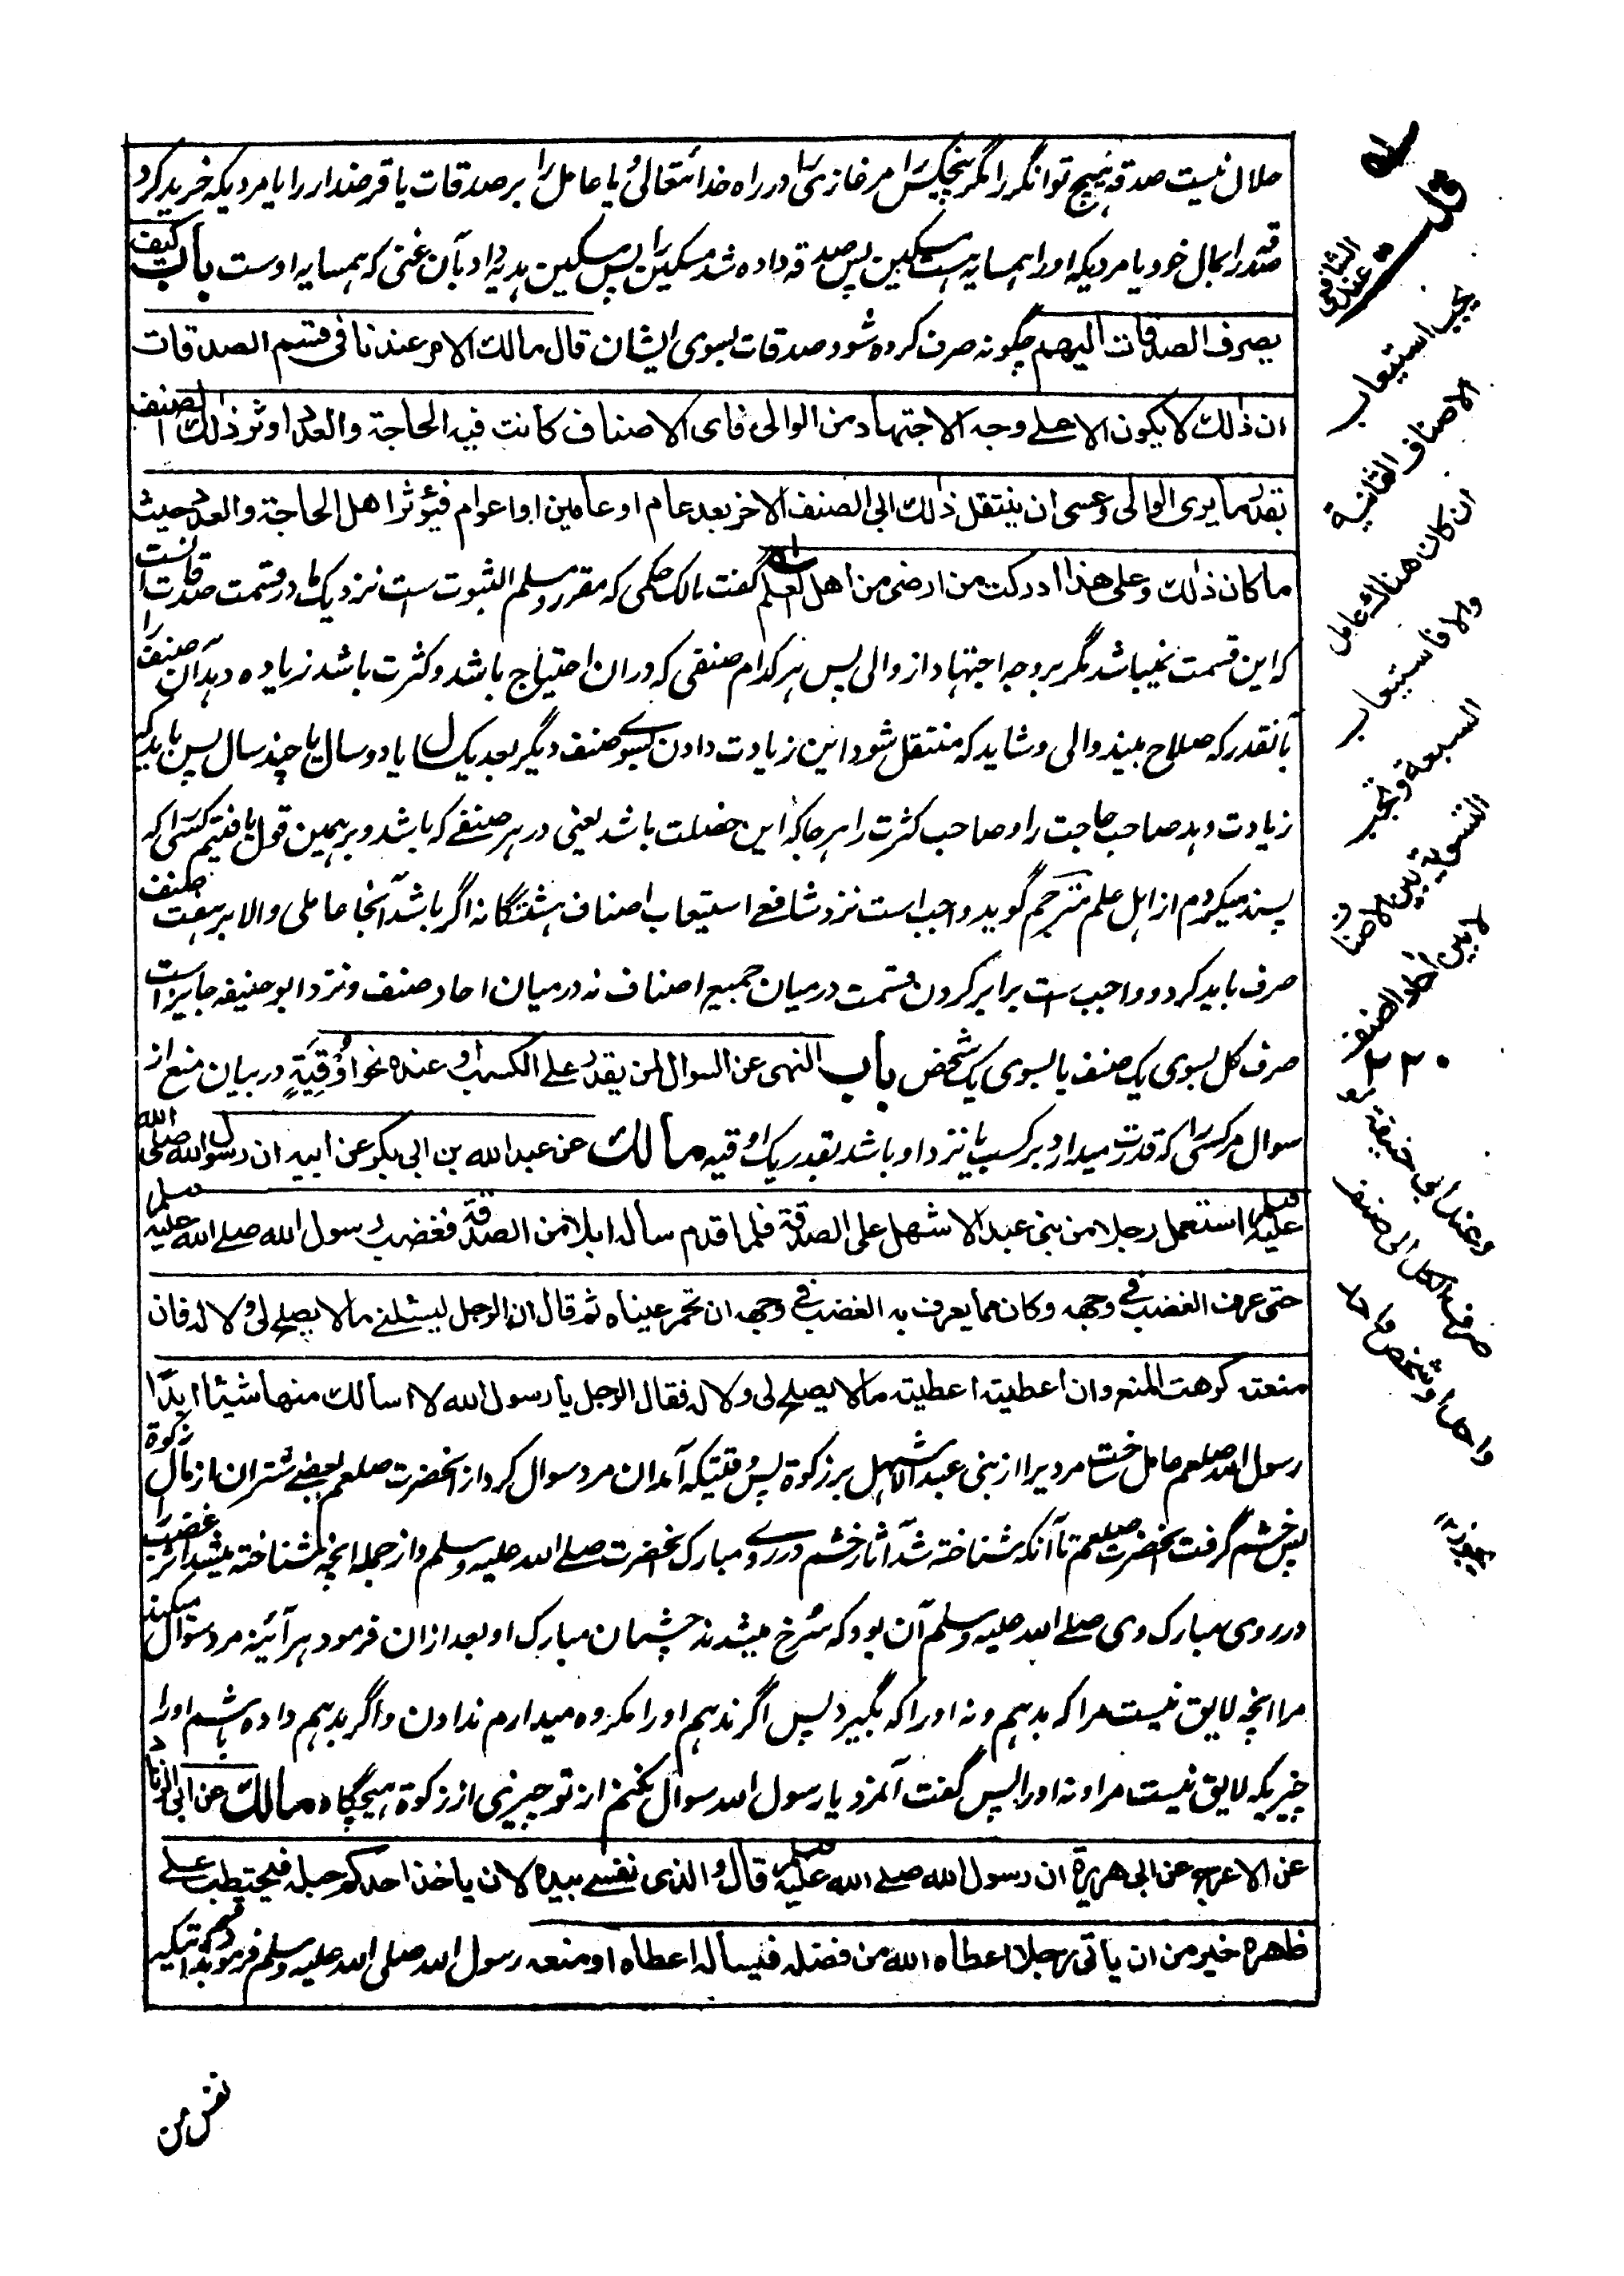 حلال نیست صدقه هیچ توانگر را مگر پنجکس را مر غازی را در راه خدا تعالی یا عامل را بر صدقات یا قرضدار را یا مردیکه خرید کرد
صدقه را بمال خود یا مردیکه او را همسایه هست مسکین پس صدقه داده شد مسکین را پس مسکین هدیه داد بآن غنی که همسایه اوست باب کیف
یصرف الصدقات الیهم چگونه صرف کرده شود صدقات بسوی ایشان قال مالك الامر عندنا فی قسم الصدقات
ان ذلك لا یکون الا علی وجه الاجتهاد من الوالی فای الاصناف کانت فیه الحاجة والعدد اوثر ذلك الصنف
بقدر ما یری الوالی وعسی ان ینتقل ذلك الی الصنف الاخر بعد عام او عامین او اعوام فیؤثر اهل الحاجة والعدد حیث
ما کان ذلك وعلی هذا ادرکت من ارضی من اهل العلم گفت مالک حکمی که مقرر و مسلم الثبوت ست نزدیک ما در قسمت صدقات آنست
که این قسمت نمیباشد مگر بر وجه اجتهاد از والی پس هر کدام صنفی که در ان احتیاج باشد و کثرت باشد زیاده دهد آن صنف را
بآنقدر که صلاح بیند والی و شاید که منتقل شود این زیادت دادن بسوی صنف دیگر بعد یک سال یا دو سال یا چند سال پس باید که
زیادت دهد صاحب حاجت را و صاحب کثرت را هر جا که این خصلت باشد یعنی در هر صنفے که باشد و بر همین قول یافتیم کسی را که
پسند میکردم از اهل علم مترجم گوید واجب است نزد شافعے استیعاب اصناف هشتگانه اگر باشد آنجا عاملی والا بر هفت صنف
صرف باید کرد و واجب ست برابر کردن قسمت درمیان جمیع اصناف نه درمیان احاد صنف و نزد ابو حنیفه جایز است
صرف کل بسوی یک صنف یا بسوی یک شخص باب النهی عن السوال لمن یقدر علی الکسب او عنده نحو اوقیة در بیان منع از
سوال مر کسی را که قدرت میدارد بر کسب یا نزد او باشد بقدر یک اوقیه مالك عن عبد الله بن ابی بکر عن ابیه ان رسول الله صلی الله
علیه وسلم استعمل رجلا من بنی عبد الاشهل علی الصدقة فلما قدم ساله ابلا من الصدقة فغضب رسول الله صلے الله علیه وسلم
حتی عرف الغضب فی وجهه وکان مما یعرف به الغضب فی وجهه ان تحمر عیناه ثم قال ان الرجل لیسئلنے ما لا یصلح لی ولا له فان
منعته کرهت المنع وان اعطیته اعطیته ما لا یصلح لی ولا له فقال الرجل یا رسول الله لا اسالك منها شیئا ابدا
رسول الله صلعم عامل ساخت مردیرا از بنی عبد الاشهل بر زکوة پس وقتیکه آمد ان مرد سوال کرد از انحضرت صلعم بعضے شتران از مال زکوة
پس خشم گرفت انحضرت صلعم تا آنکه شناخته شد آثار خشم در روے مبارک انحضرت صلے الله علیه وسلم و از جمله انچه شناخته میشد اثر غضب را
در روی مبارک وی صلے الله علیه وسلم آن بود که سرخ میشدند چشمان مبارک او بعد از ان فرمود هر آئینه مرد سوال میکند
مرا انچه لایق نیست مرا که بدهم و نه او را که بگیرد پس اگر ندهم او را مکروه میدارم ندادن و اگر بدهم داده باشم او را
چیزیکه لایق نیست مرا و نه او را پس گفت آنمرد یا رسول الله سوال نکنم از تو چیزی از زکوة هیچگاه مالك عن ابی الزناد
عن الاعرج عن ابی هریرة ان رسول الله صلے الله علیه وسلم قال والذی نفسے بیده لان یاخذ احدکم حبله فیحتطب علے
ظهره خیر من ان یاتی رجلا اعطاه الله من فضله فیساله اعطاه او منعه رسول الله صلی الله علیه وسلم فرمود قسم بخدائیکه
نفس من
قلت
عند الشافعی
یجب استیعاب
الاصناف الثمانیة
ان کان هناك عامل
والا فاستیعاب
السبعة ویجب
التسویة بین الاصناف
لا بین احاد الصنف
۲۲۰
وعند ابی حنیفة یجوز
صرف الکل الی صنف
واحد او شخص واحد